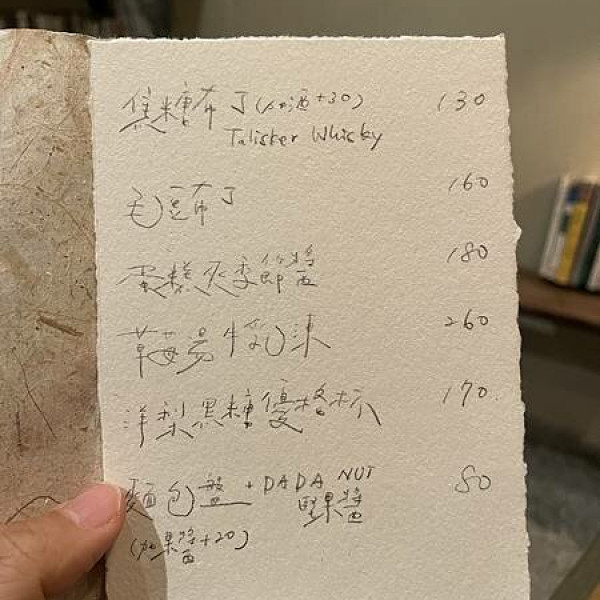 焦糖布丁(加酒+30) 130
Talisker Whisky
毛豆布丁 160
蛋糕夾季節醬 180
草莓湯牛乳凍 260
洋梨黑糖優格杯 170
麵包盤 + DADA NUT 80
堅果醬
(加果醬+20)